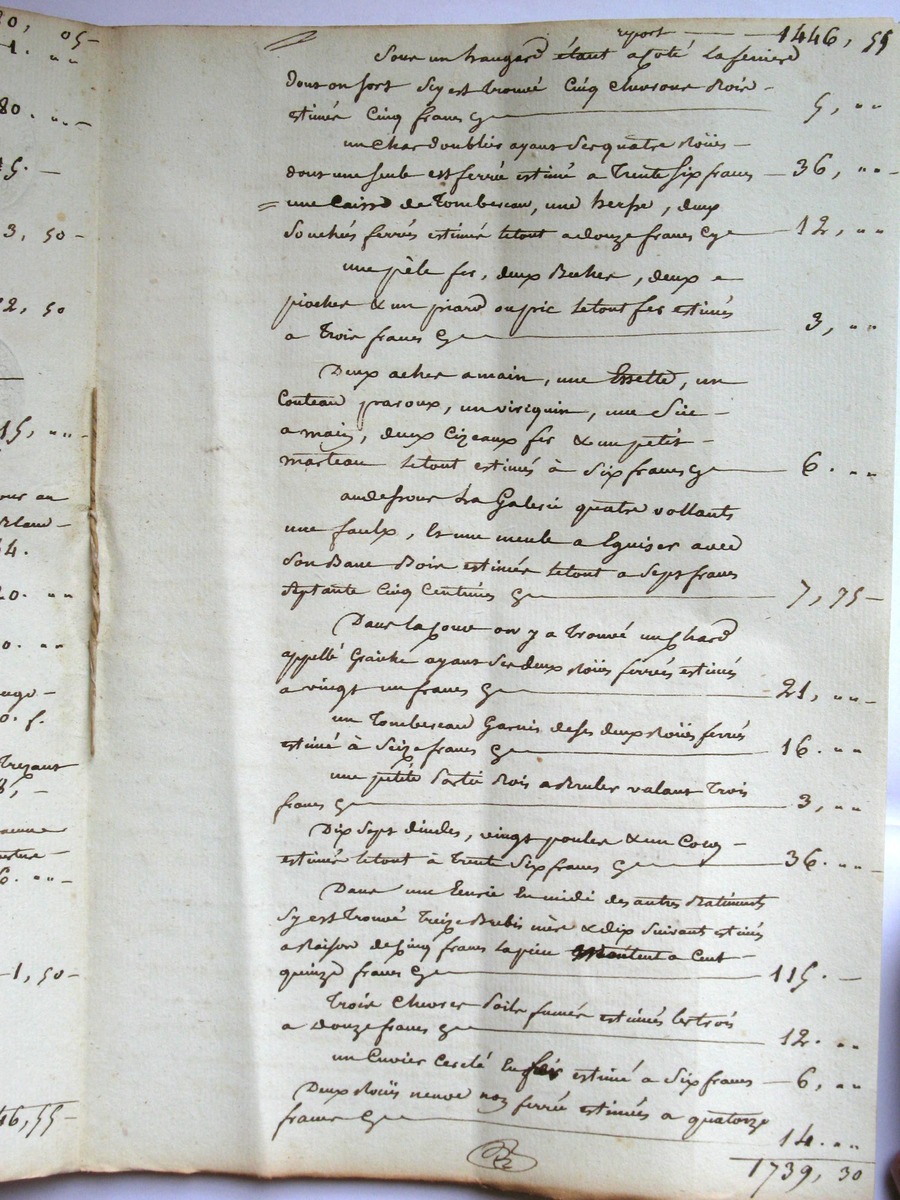 report 1446, 55
Sous un haugard étant a Coté la feniere
dous on sort s'y est trouvé Cinq Chevrons Bois
estimés Cinq francs Cy 5, "
un Char doublier ayant Ses quatre Roües
dont une seule est ferrée estimé a Trente Six francs 36, "
une Caisse de Tombereau, une herse, deux
Souches ferrés estimés le tout a douze francs Cy 12, "
une pèle fer, deux Beches, deux
pioches & un piard ou pic le tout fer estimés
a Trois francs Cy 3, "
Deux aches a main, une Essette, un
Couteau paroux, un virequin, une Sie
a main, deux Cizeaux fer & un petit
marteau le tout estimés à Six francs Cy 6. "
au dessous La Galerie quatre vollants
une faulx, Et une meule a Eguiser avec
Son Banc Bois estimés le tout a Sept francs
Septante Cinq Centimes Cy 7, 75
Dans la Cour on y a Trouvé un Chard
appellé Graiche ayant Ses deux Roües ferrées estimés
a vingt un francs Cy 21, "
un Tombereau Garnis de Ses deux Roües ferrés
estimé à Seize francs Cy 16. "
une petite Partie Bois a Bruler valant Trois
francs Cy 3, "
Dix Sept dindes, vingt poules & un Cocq
estimés le tout à Trente Six francs Cy 36. "
Dans une Ecurie En midi des autres Batiments
s'y est Trouvé Treize Brebis mère & dix Suivant estimés
a Raison de Cinq francs la piece montent a Cent
quinze francs Cy 115.
Trois Chevres Poils fumés estimés les trois
a douze francs Cy 12. "
un Cuvier Cerclé En fer estimé a Six francs 6, "
Deux Roües neuve non ferrée estimées a quatorze
francs Cy 14. "
1739, 30